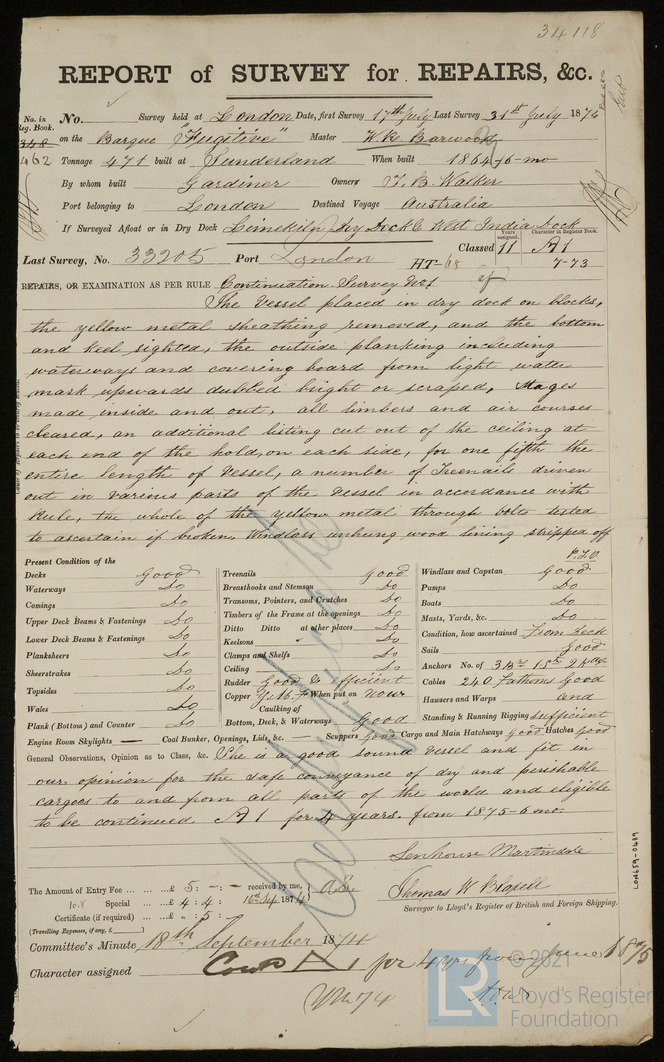 34118
REPORT of SURVEY for REPAIRS, &c.
No. in Reg. Book. No. Survey held at London Date, first Survey 17th July Last Survey 31st July 1874
348 on the Barque "Fugitive" Master W. R. Barwood
462 Tonnage 471 built at Sunderland When built 1864-6-mo
By whom built Gardiner Owners T. B. Walker
Port belonging to London Destined Voyage Australia
If Surveyed Afloat or in Dry Dock Limekiln Dry Dock & West India Dock
Years assigned. Character in Register Book.
Last Survey, No. 33205 Port London Classed 11 A1
HT-68 7-73
REPAIRS, OR EXAMINATION AS PER RULE Continuation Survey No1
The Vessel placed in dry dock on blocks,
the yellow metal sheathing removed, and the bottom
and keel sighted, the outside planking including
waterways and covering board from light water
mark upwards dubbed bright or scraped, Stages
made inside and out, all limbers and air courses
cleared, an additional listing cut out of the ceiling at
each end of the hold, on each side, for one fifth the
entire length of Vessel, a number of Treenails driven
out in various parts of the Vessel in accordance with
Rule, the whole of the yellow metal through bolts tested
to ascertain if broken, Windlass unhung wood lining stripped off
P.T.O
Present Condition of the
Decks Good
Waterways Do
Comings Do
Upper Deck Beams & Fastenings Do
Lower Deck Beams & Fastenings Do
Planksheers Do
Sheerstrakes Do
Topsides Do
Wales Do
Plank (Bottom) and Counter Do
Treenails Good
Breasthooks and Stemson Do
Transoms, Pointers, and Crutches Do
Timbers of the Frame at the openings Do
Ditto Ditto at other places Do
Keelsons Do
Clamps and Shelfs Do
Ceiling Do
Rudder Good & efficient
Copper Y.M. When put on Now
Caulking of
Bottom, Deck, & Waterways Good
Windlass and Capstan Good
Pumps Do
Boats Do
Masts, Yards, &c. Do
Condition, how ascertained From Deck
Sails Good
Anchors No. of 3 Brs 1 Sm 2 Kedges
Cables 240 Fathoms Good
Hawsers and Warps and
Standing & Running Rigging sufficient
Engine Room Skylights — Coal Bunker, Openings, Lids, &c. — Scuppers Good Cargo and Main Hatchways Good Hatches Good
General Observations, Opinion as to Class, &c. She is a good sound Vessel and fit in
our opinion for the safe conveyance of dry and perishable
cargoes to and from all parts of the world and eligible
to be continued A1 for 4 years. from 1875-6 mo:
Senhouse Martindale
Thomas W Blaxell
Surveyor to Lloyd's Register of British and Foreign Shipping.
The Amount of Entry Fee ... £ 5 : - : - received by me,
Special ... £ 4 : 4 : 16th Sep. 1874
Certificate (if required) ... £ " : 5 :
(Travelling Expenses, if any, £ )
Committee's Minute 18th September 1874
Character assigned Cont A1 for 4 yrs from June 1875
LON659-0489
© 2021
LR
Lloyd's Register
Foundation